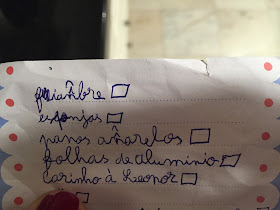 fiambre
esponjas
panos amarelos
folhas de aluminio
carinho à Leonor